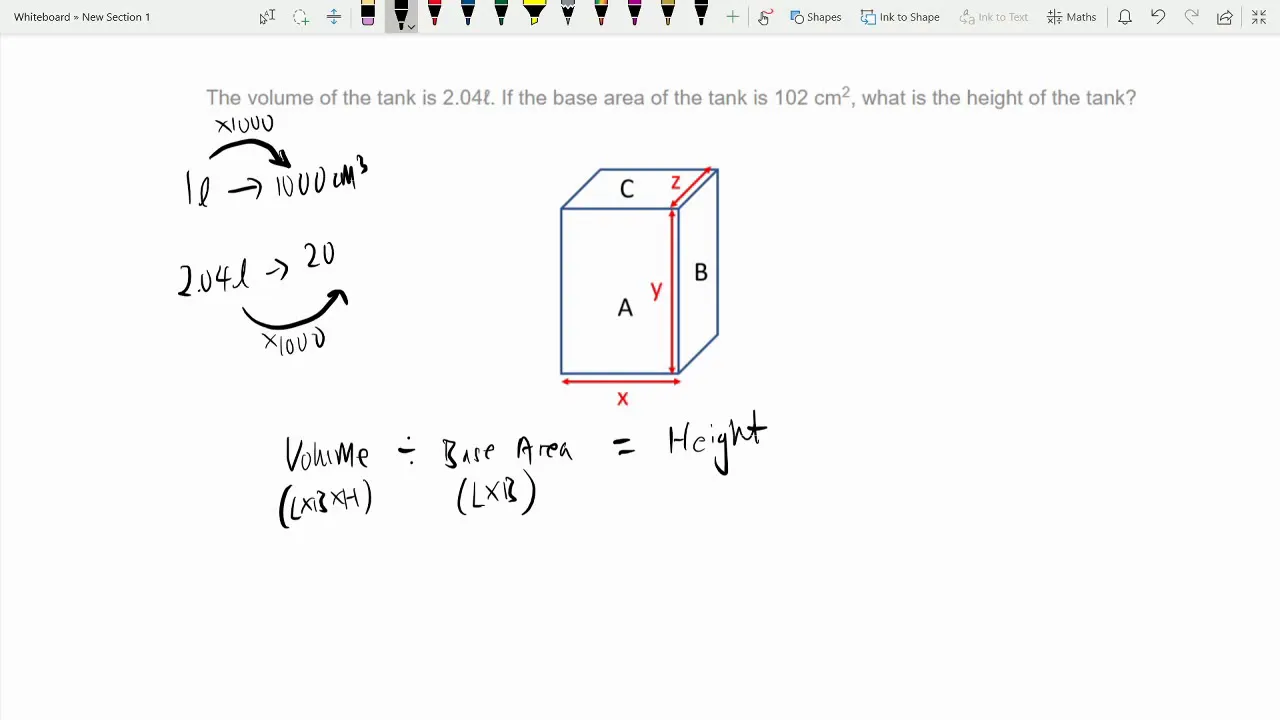 Whiteboard » New Section 1
Shapes Ink to Shape Ink to Text Maths
The volume of the tank is 2.04ℓ. If the base area of the tank is 102 cm², what is the height of the tank?
×1000
1ℓ → 1000 cm³
2.04ℓ → 20
×1000
C
z
B
y
A
x
Volume ÷ Base Area = Height
(L×B×H) (L×B)